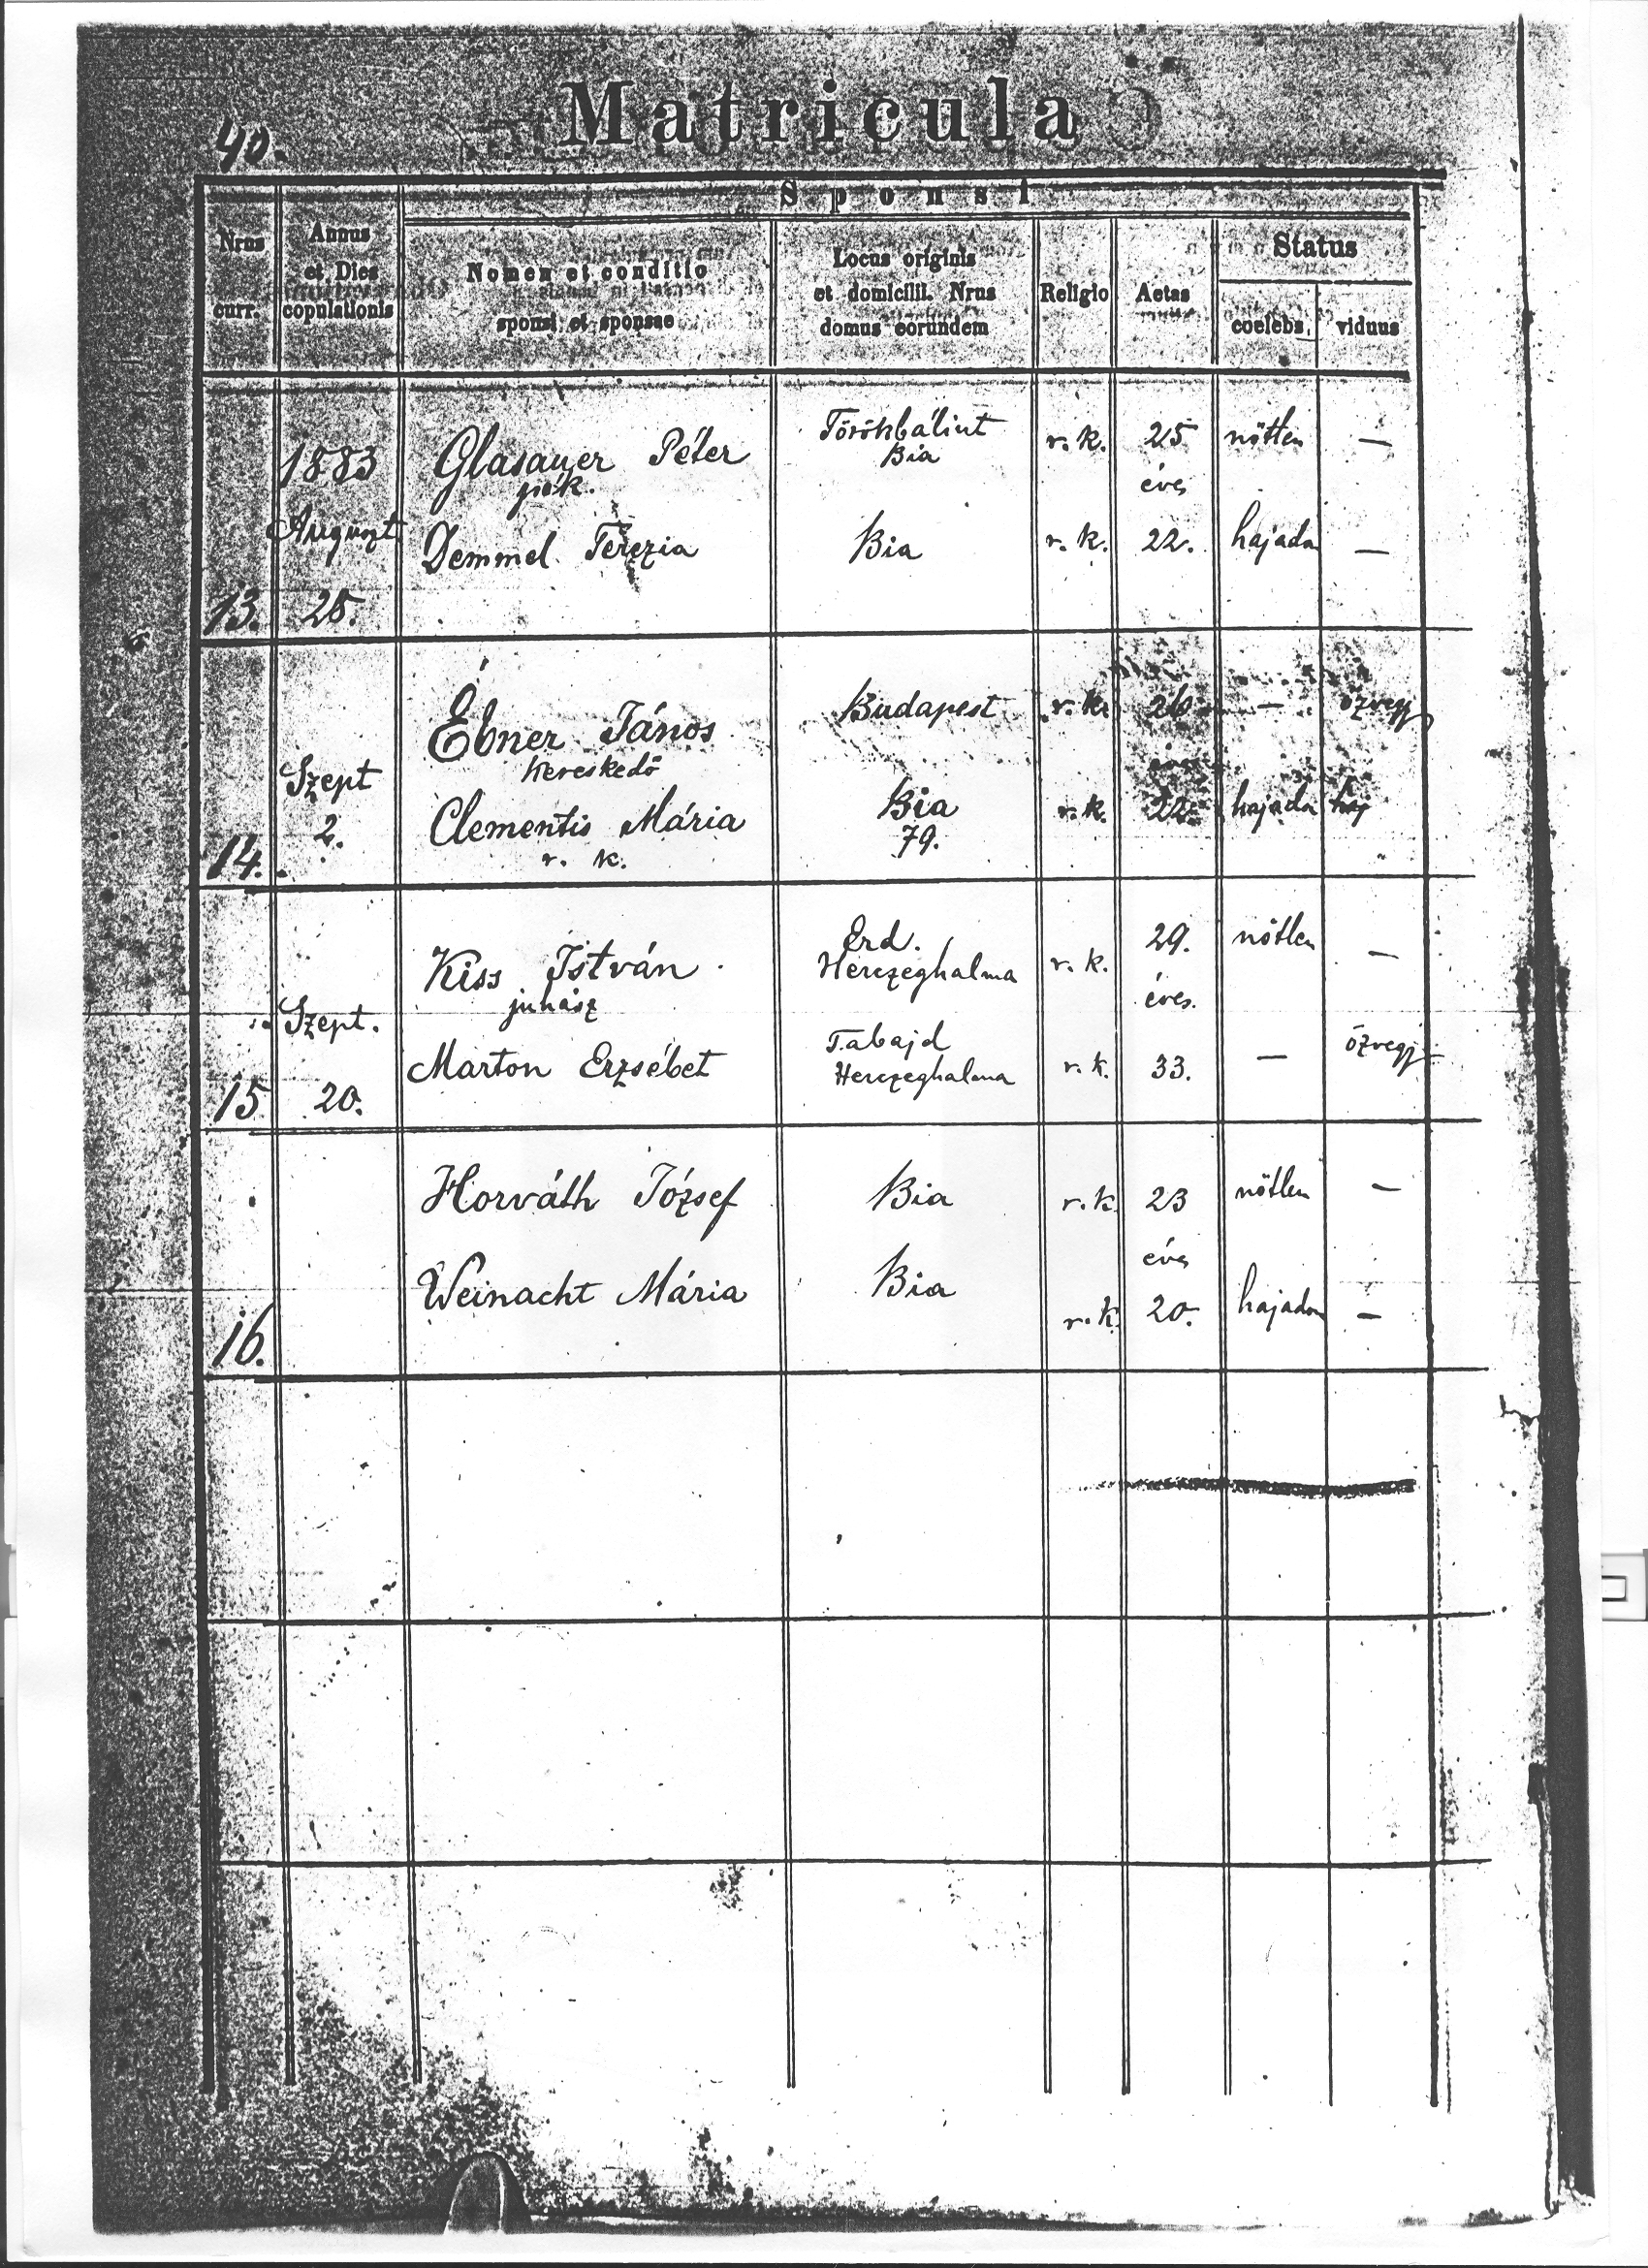 40.
Matricula
Sponsi
Nrus
curr.
Annus
et Dies
copulationis
Nomen et conditio
sponsi et sponsae
Locus originis
et domicilii. Nrus
domus eorundem
Religio
Aetas
Status
coelebs
viduus
13.
1883
August
25.
Glasauer Péter
Demmel Terézia
Törökbálint
Bia
Bia
r. k.
r. k.
25
éves
22.
nőtlen
hajadon
—
—
14.
Szept
2.
Ébner János
kereskedő
Clementis Mária
r. k.
Budapest
Bia
79.
r. k.
r. k.
26
éves
22.
—
hajadon
özvegy
haj
15
Szept.
20.
Kiss István
juhász
Marton Erzsébet
Erd.
Herczeghalma
Tabajd
Herczeghalma
r. k.
r. k.
29.
éves.
33.
nőtlen
—
—
özvegy
16.
Horváth József
Weinacht Mária
Bia
Bia
r. k.
r. k.
23
éves
20.
nőtlen
hajadon
—
—